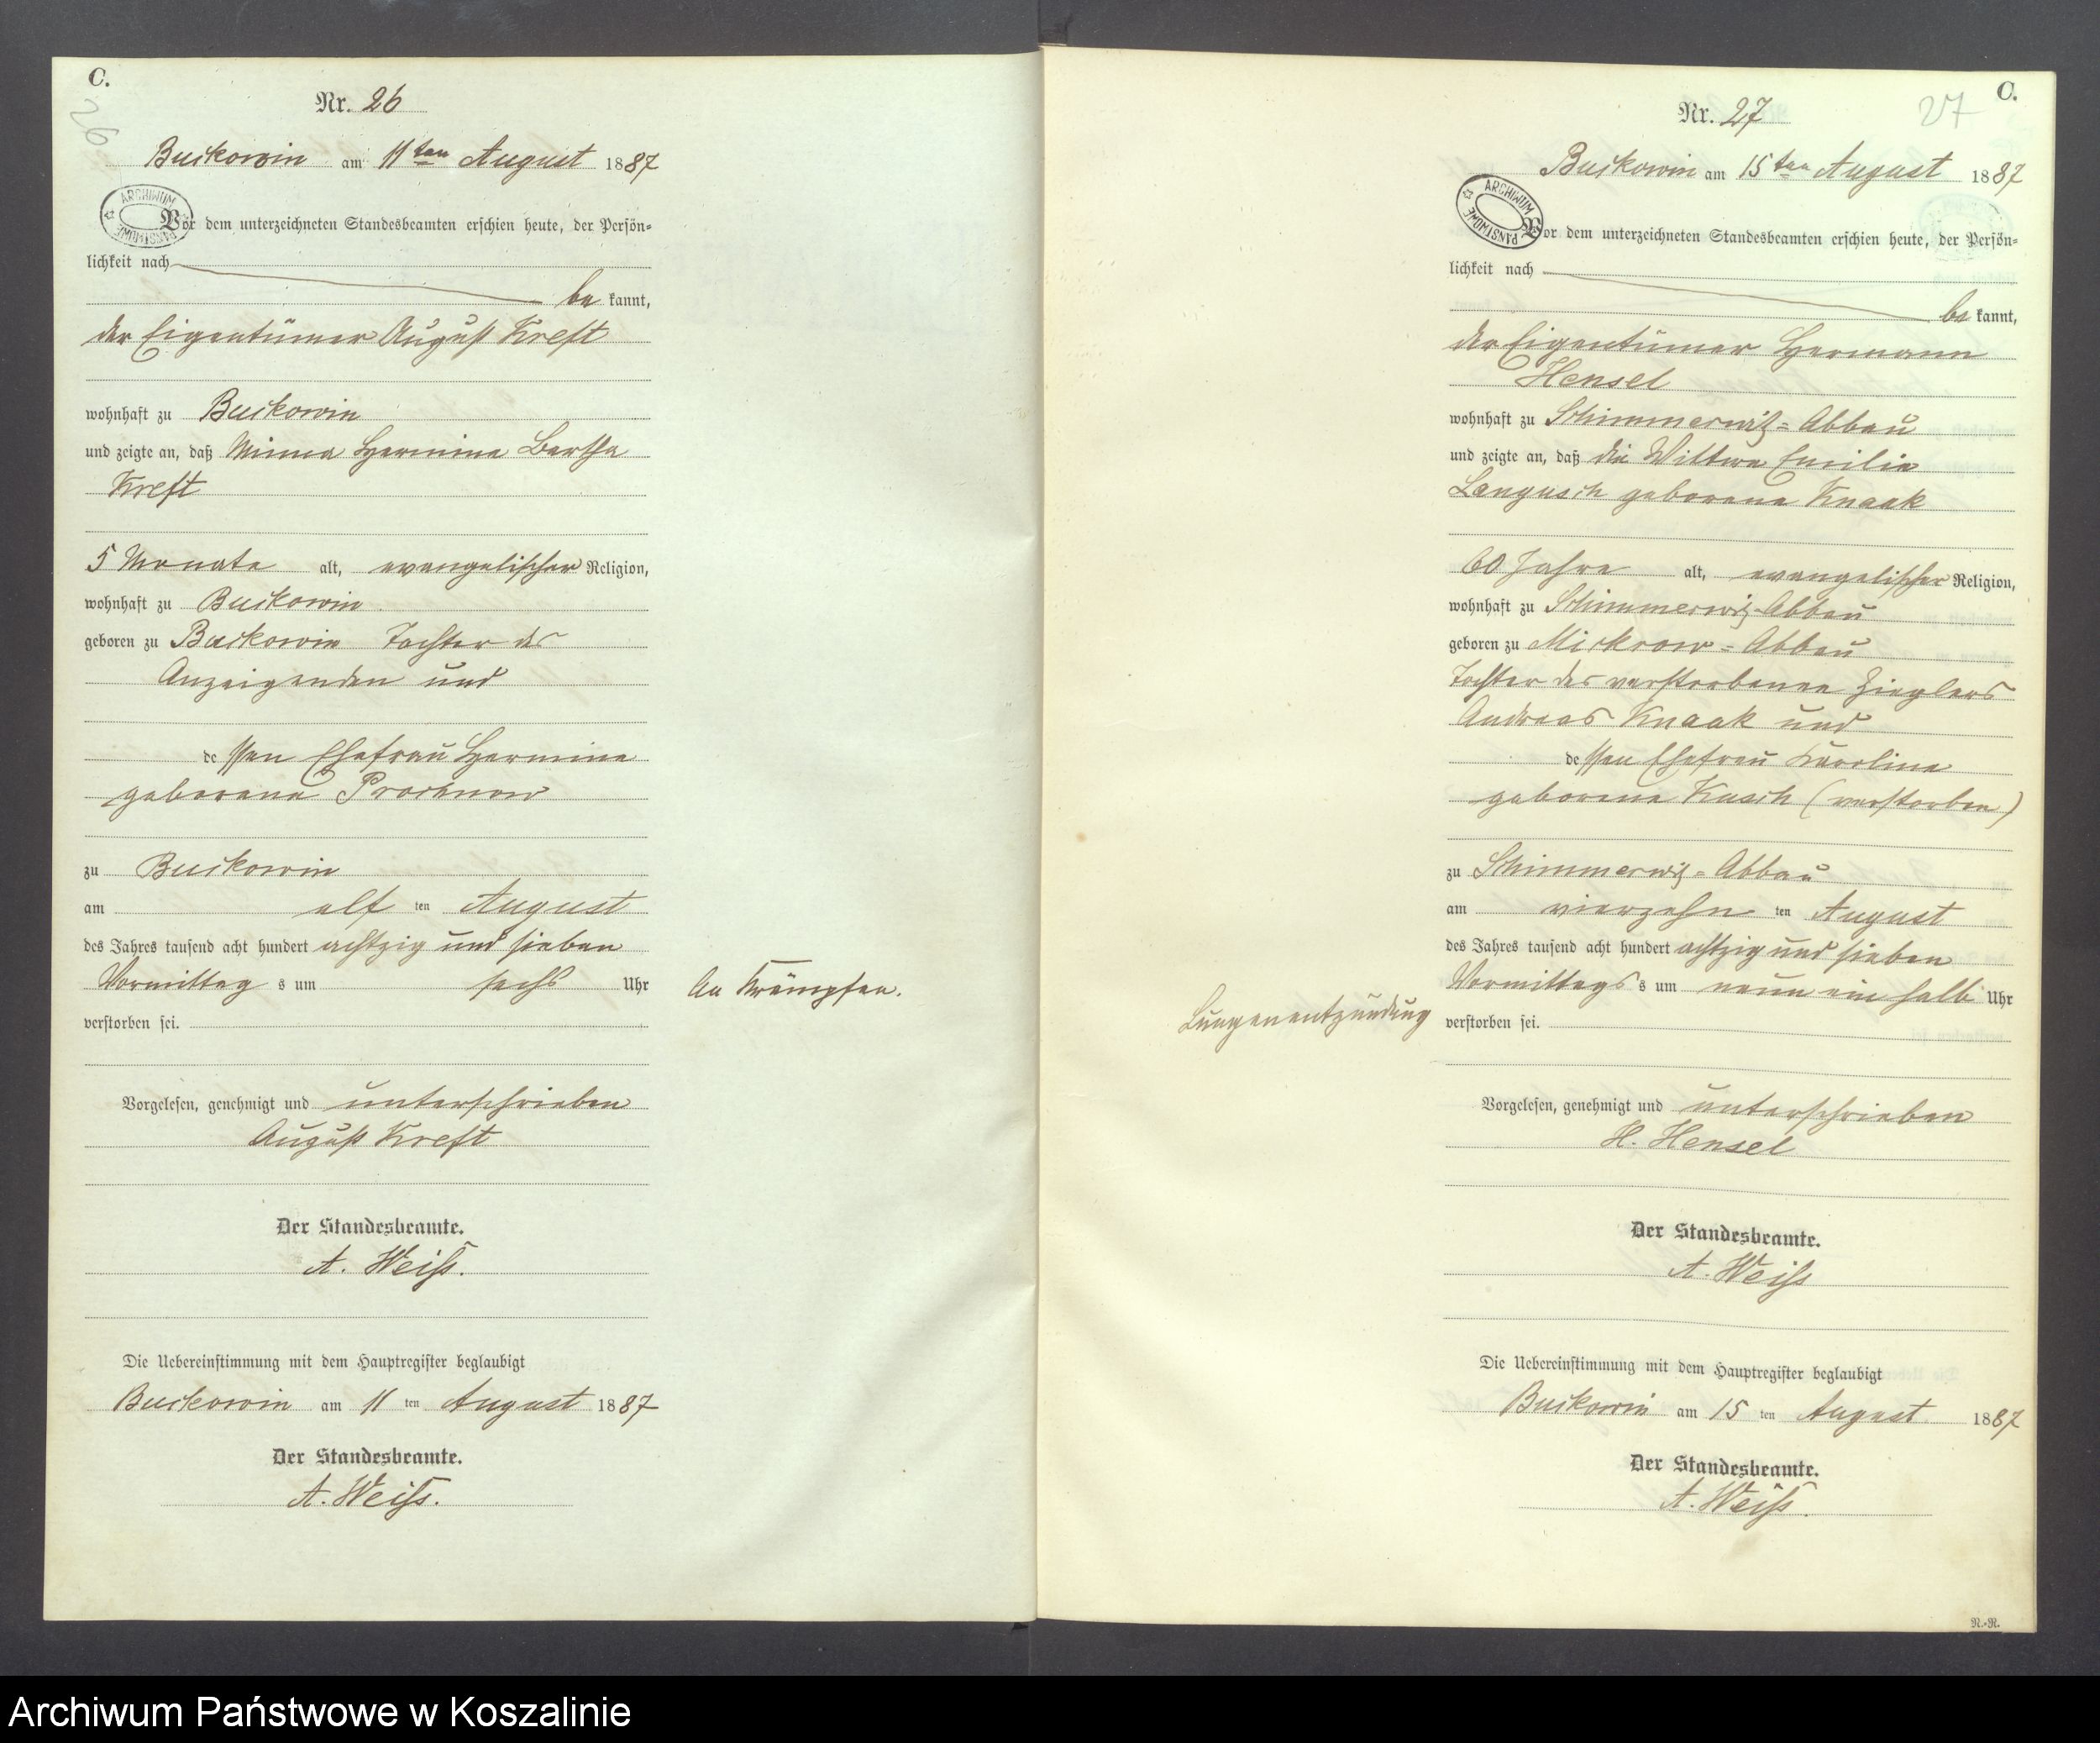 C.
26
Nr. 26
Buckowin am 11ten August 1887
ARCHIWUM PAŃSTWOWE
Vor dem unterzeichneten Standesbeamten erschien heute, der Persön-
lichkeit nach
be kannt,
der Eigentümer August Kreft
wohnhaft zu Buckowin
und zeigte an, daß Minna Hermine Bertha
Kreft
5 Monate alt, evangelischer Religion,
wohnhaft zu Buckowin
geboren zu Buckowin Tochter des
Anzeigenden und
dessen Ehefrau Hermine
geborene Prochnow
zu Buckowin
am elf ten August
des Jahres tausend acht hundert achtzig und sieben
Vormittag s um sechs Uhr
An Krämpfen.
verstorben sei.
Vorgelesen, genehmigt und unterschrieben
August Kreft
Der Standesbeamte.
A. Weiß.
Die Uebereinstimmung mit dem Hauptregister beglaubigt
Buckowin am 11 ten August 1887
Der Standesbeamte.
A. Weiß.
C.
27
Nr. 27
Buckowin am 15ten August 1887
ARCHIWUM PAŃSTWOWE
Vor dem unterzeichneten Standesbeamten erschien heute, der Persön-
lichkeit nach
be kannt,
der Eigentümer Hermann
Hensel
wohnhaft zu Schimmerwitz-Abbau
und zeigte an, daß die Wittwe Emilie
Langusch geborene Knaak
60 Jahre alt, evangelischer Religion,
wohnhaft zu Schimmerwitz-Abbau
geboren zu Mickrow-Abbau
Tochter des verstorbenen Zieglers
Andreas Knaak und
dessen Ehefrau Karoline
geborene Kusch (verstorben)
zu Schimmerwitz-Abbau
am vierzehn ten August
des Jahres tausend acht hundert achtzig und sieben
Vormittags s um neun ein halb Uhr
Lungenentzündung
verstorben sei.
Vorgelesen, genehmigt und unterschrieben
H. Hensel
Der Standesbeamte.
A. Weiß
Die Uebereinstimmung mit dem Hauptregister beglaubigt
Buckowin am 15 ten August 1887
Der Standesbeamte.
A. Weiß.
R.-R.
Archiwum Państwowe w Koszalinie